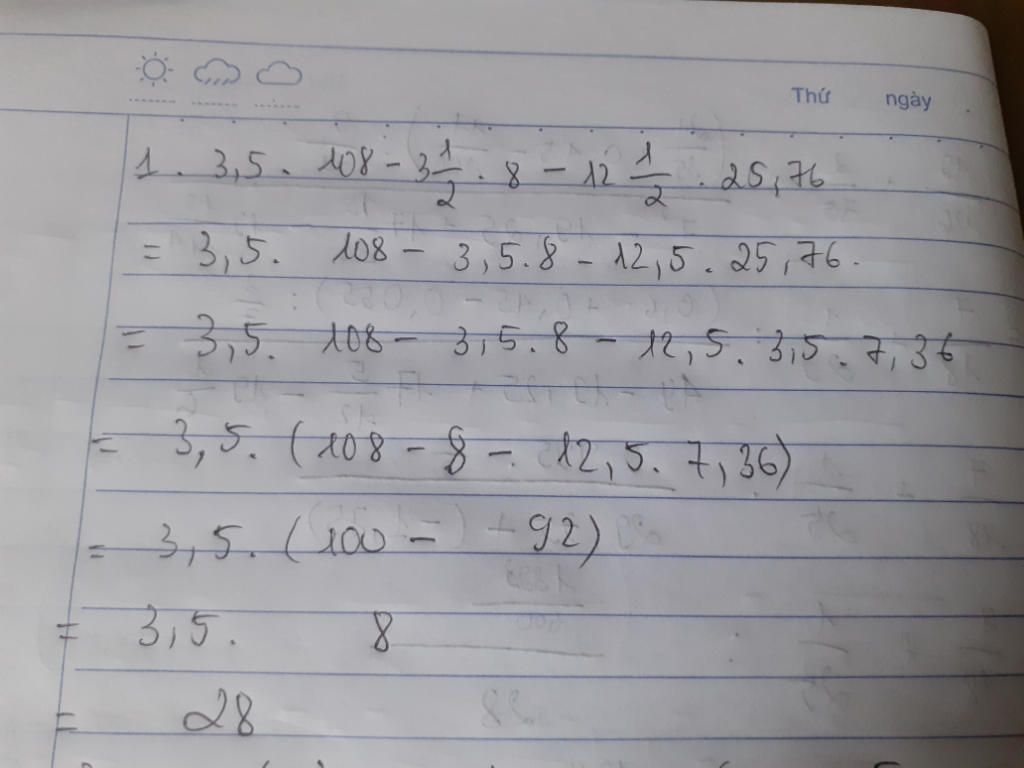 Thứ ngày
1. 3,5. 108 - 3 1/2 . 8 - 12 1/2 . 25,76
= 3,5. 108 - 3,5.8 - 12,5. 25,76.
= 3,5. 108 - 3,5.8 - 12,5. 3,5. 7,36
= 3,5. (108 - 8 - 12,5. 7,36)
= 3,5. (100 - 92)
= 3,5. 8
= 28